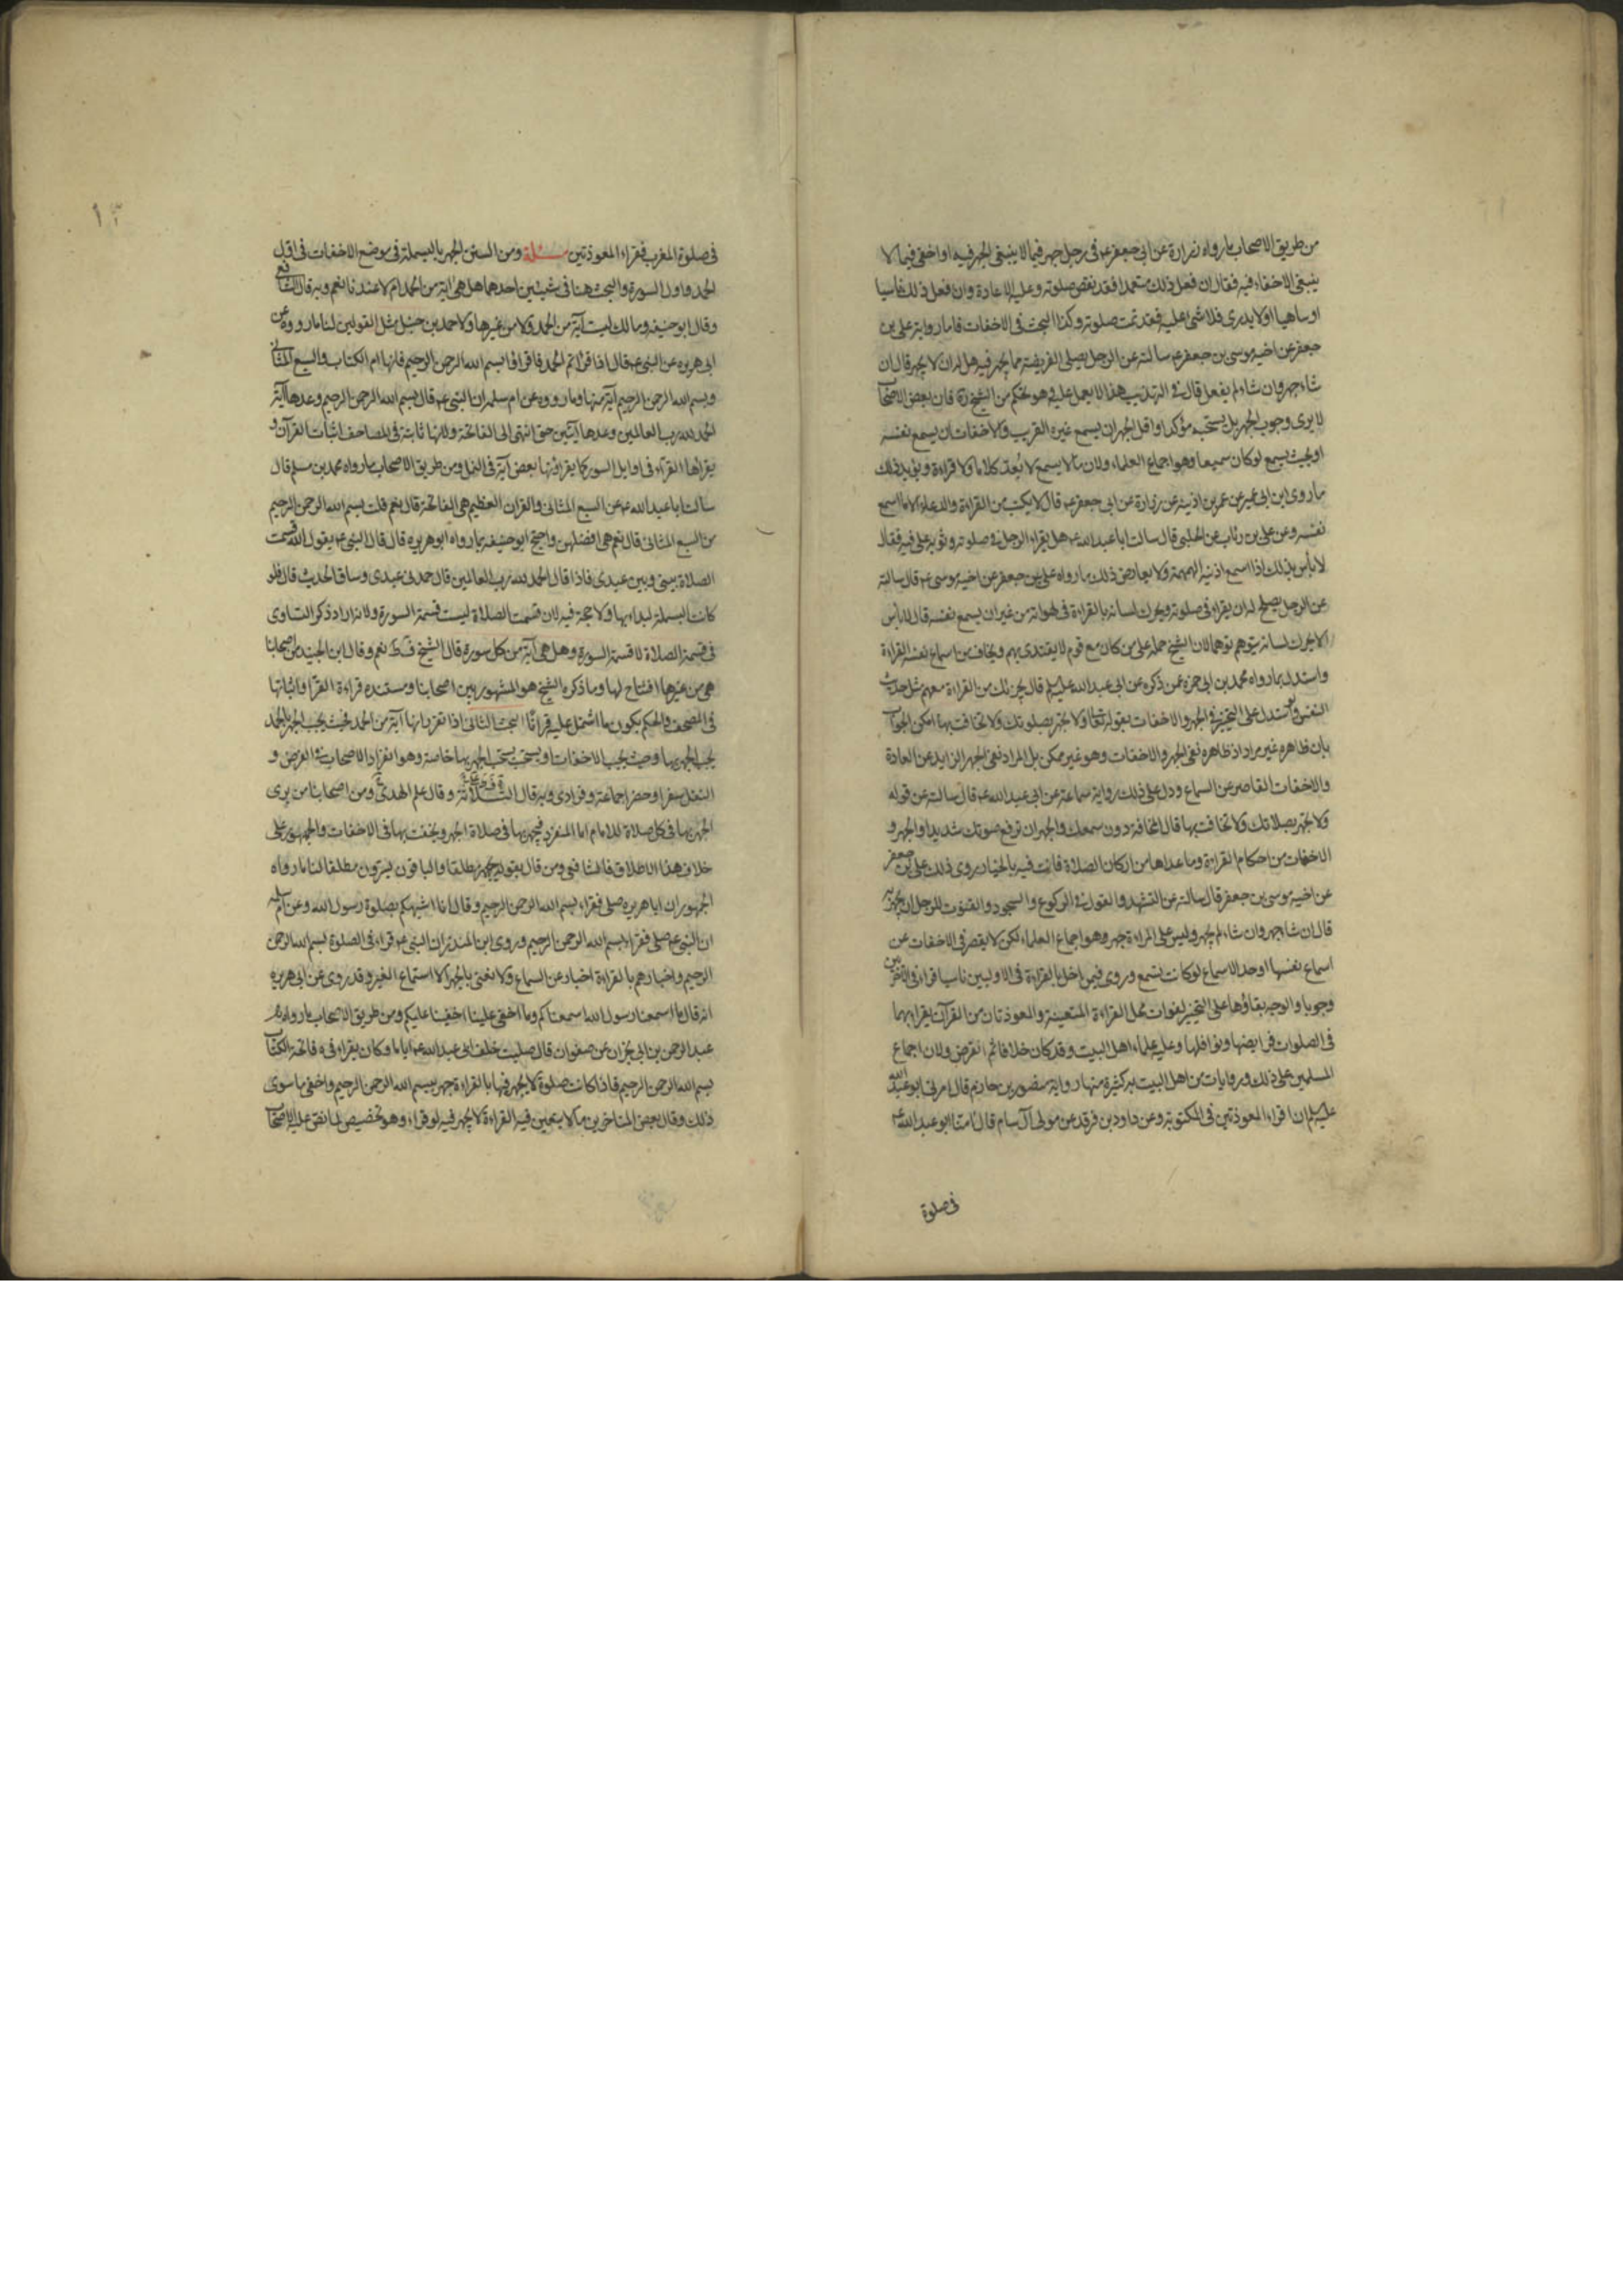 من طريق الاصحاب ما رواه زرارة عن ابى جعفر عه فى رجل جهر فيما لا ينبغى الجهر فيه او اخفى فيما لا
ينبغى الاخفاء فيه فقال ان فعل ذلك متعمدا فقد نقض صلوته وعليه الاعادة وان فعل ذلك ناسيا
او ساهيا او لا يدرى فلا شئ عليه فقد تمت صلوته وكذا البحث فى الاخفات فاما رواية على بن
جعفر عن اخيه موسى بن جعفر عه سالته عن الرجل يصلى الفريضة مما يجهر فيه هل له ان لا يجهر قال ان
شاء جهر وان شاء لم يفعل قال فى التهذيب هذا لا يعمل عليه وهو تحكم من الشيخ ره فان بعض الاصحاب
لا يرى وجوب الجهر بل يستحبه مؤكدا واقل الجهر ان يسمع غيره القريب والاخفات ان يسمع نفسه
او بحيث يسمع لو كان سميعا وهو اجماع العلماء ولان ما لا يسمع لا يعد كلاما ولا قراءة ويؤيد ذلك
ما روى ابن ابى عمير عن عمر بن اذينة عن زرارة عن ابى جعفر عه قال لا يكتب من القراءة والدعاء الا ما اسمع
نفسه وعن على بن رئاب عن الحلبى قال سالت ابا عبد الله عه هل يقراء الرجل فى صلوته وثوبه على فيه فقال
لا باس بذلك اذا اسمع اذنيه الهمهمة ولا يعارض ذلك ما رواه على بن جعفر عن اخيه موسى عه قال سالته
عن الرجل يصلح له ان يقراء فى صلوته ويحرك لسانه بالقراءة فى لهواته من غير ان يسمع نفسه قال لا باس
الا يحرك لسانه يتوهم توهما لان الشيخ حمله على من كان مع قوم لا يقتدى بهم ويخاف من اسماع نفسه القراءة
واستدل بما رواه محمد بن ابى حمزه عمن ذكره عن ابى عبد الله عليه السلم قال يجزئك من القراءة معهم مثل حديث
النفس ولو استدل على التخيير فى الجهر والاخفات بقوله تعالى ولا تجهر بصلوتك ولا تخافت بها امكن الجواب
بان ظاهره غير مراد اذ ظاهره نفى الجهر والاخفات وهو غير ممكن بل المراد نفى الجهر الزايد عن العادة
والاخفات القاصر عن السماع ودل على ذلك رواية سماعة عن ابى عبد الله عه قال سالته عن قوله
ولا تجهر بصلاتك ولا تخافت بها قال المخافة دون سمعك والجهر ان ترفع صوتك شديدا والجهر و
الاخفات من احكام القراءة وما عداها من اركان الصلاة فانت فيه بالخيار روى ذلك على بن جعفر
عن اخيه موسى بن جعفر قال سالته عن التشهد والقول فى الركوع والسجود والقنوت للرجل ان يجهر به
قال ان شاء جهر وان شاء لم يجهر وليس على المراءة جهر وهو اجماع العلماء لكن لا يقصر فى الاخفات عن
اسماع نفسها او حد الاسماع لو كانت تسمع وروى فيمن اخل بالقراءة فى الاوليين ناسيا قراء فى الاخيرتين
وجوبا والوجه بقاؤها على التخيير لفوات محل القراءة المتعينة والمعوذتان من القرآن يقرا بهما
فى الصلوات فرايضها ونوافلها وعليه علماء اهل البيت وقد كان خلاف انقرض ولان اجماع
المسلمين على ذلك وروايات من اهل البيت به كثيرة منها رواية منصور بن حازم قال امرنى ابو عبد الله
عليه السلم ان اقراء المعوذتين فى المكتوبة وعن داود بن فرقد عن مولى آل سام قال امنا ابو عبد الله عه
فى صلوة
فى صلوة المغرب فقراء المعوذتين مسئلة ومن السنن الجهر بالبسملة فى موضع الاخفات فى اول
الحمد واول السورة والبحث هنا فى شيئين احدهما هل هى اية من الحمد ام لا عندنا نعم وبه قال الشافعى
وقال ابو حنيفه ومالك ليست آية من الحمد ولا من غيرها ولاحمد بن حنبل مثل القولين لنا ما رووه عن
ابى هريره عن النبى عه قال اذا قراتم الحمد فاقراوا بسم الله الرحمن الرحيم فانها ام الكتاب والسبع المثانى
وبسم الله الرحمن الرحيم آية منها وما رووه عن ام سلمه ان النبى عه قال بسم الله الرحمن الرحيم وعدها آية
الحمد لله رب العالمين وعدها آيتين حتى انتهى الى الفاتحة ولانها ثابتة فى المصاحف اثبات القرآن و
يقراها القراء فى اوايل السور كما يقراؤنها بعض آية فى النمل ومن طريق الاصحاب ما رواه محمد بن مسلم قال
سالت ابا عبد الله عه عن السبع المثانى والقران العظيم هى الفاتحة قال نعم قلت بسم الله الرحمن الرحيم
من السبع المثانى قال نعم هى افضلهن واحتج ابو حنيفه بما رواه ابو هريره قال قال النبى عه يقول الله قسمت
الصلاة بينى وبين عبدى فاذا قال الحمد لله رب العالمين قال حمدنى عبدى وساق الحديث قال فلو
كانت البسملة لبداء بها ولا حجة فيه لان قسمت الصلاة ليست قسمة السورة ولانه اراد ذكر التساوى
فى قسمة الصلاة لا قسمة السورة وهل هى آية من كل سورة قال الشيخ فى ط نعم وقال ابن الجنيد من اصحابنا
هى من غيرها افتتاح لها وما ذكره الشيخ هو المشهور بين اصحابنا ومستنده قراءة القرآء واثباتها
فى المصحف والحكم بكون ما اشتمل عليه قرانا البحث الثانى اذا تقرر انها آية من الحمد فحيث يجب الجهر بالحمد
يجب الجهر بها وحيث يجب الاخفات او يستحب يستحب الجهر بها خاصة وهو انفراد الاصحاب فى الفرض و
النفل سفرا وحضرا جماعة وفرادى وبه قال الثلاثة وقال علم الهدى ومن اصحابنا من يرى
الجهر بها فى كل صلاة للامام اما المنفرد فيجهر بها فى صلاة الجهر ويخفت بها فى الاخفات والجمهور على
خلاف هذا الاطلاق فالشافعى ومن قال بقوله يجهر مطلقا والباقون يسرون مطلقا لنا ما رواه
الجمهور ان ابا هريره صلى فقراء بسم الله الرحمن الرحيم وقال انا اشبهكم بصلوة رسول الله وعن ام سلمه
ان النبى عه صلى فقراء بسم الله الرحمن الرحيم وروى ابن المنذر ان النبى عه قراء فى الصلوة بسم الله الرحمن
الرحيم واخبارهم بالقراءة اخبار عن السماع ولا نعنى بالجهر الا استماع الغير وقد روى عن ابى هريره
انه قال ما اسمعنا رسول الله اسمعناكم وما اخفى علينا اخفينا عليكم ومن طريق الاصحاب ما رواه
عبد الرحمن بن ابى نجران عن صفوان قال صليت خلف ابى عبد الله عه اياما وكان يقراء فى فاتحة الكتاب
بسم الله الرحمن الرحيم فاذا كانت صلوة لا يجهر فيها بالقراءة جهر ببسم الله الرحمن الرحيم واخفى ما سوى
ذلك وقال بعض المتاخرين ما لا يتعين فيه القراءة لا يجهر فيه لو قراء وهو تخصيص لما نص عليه الاصحاب